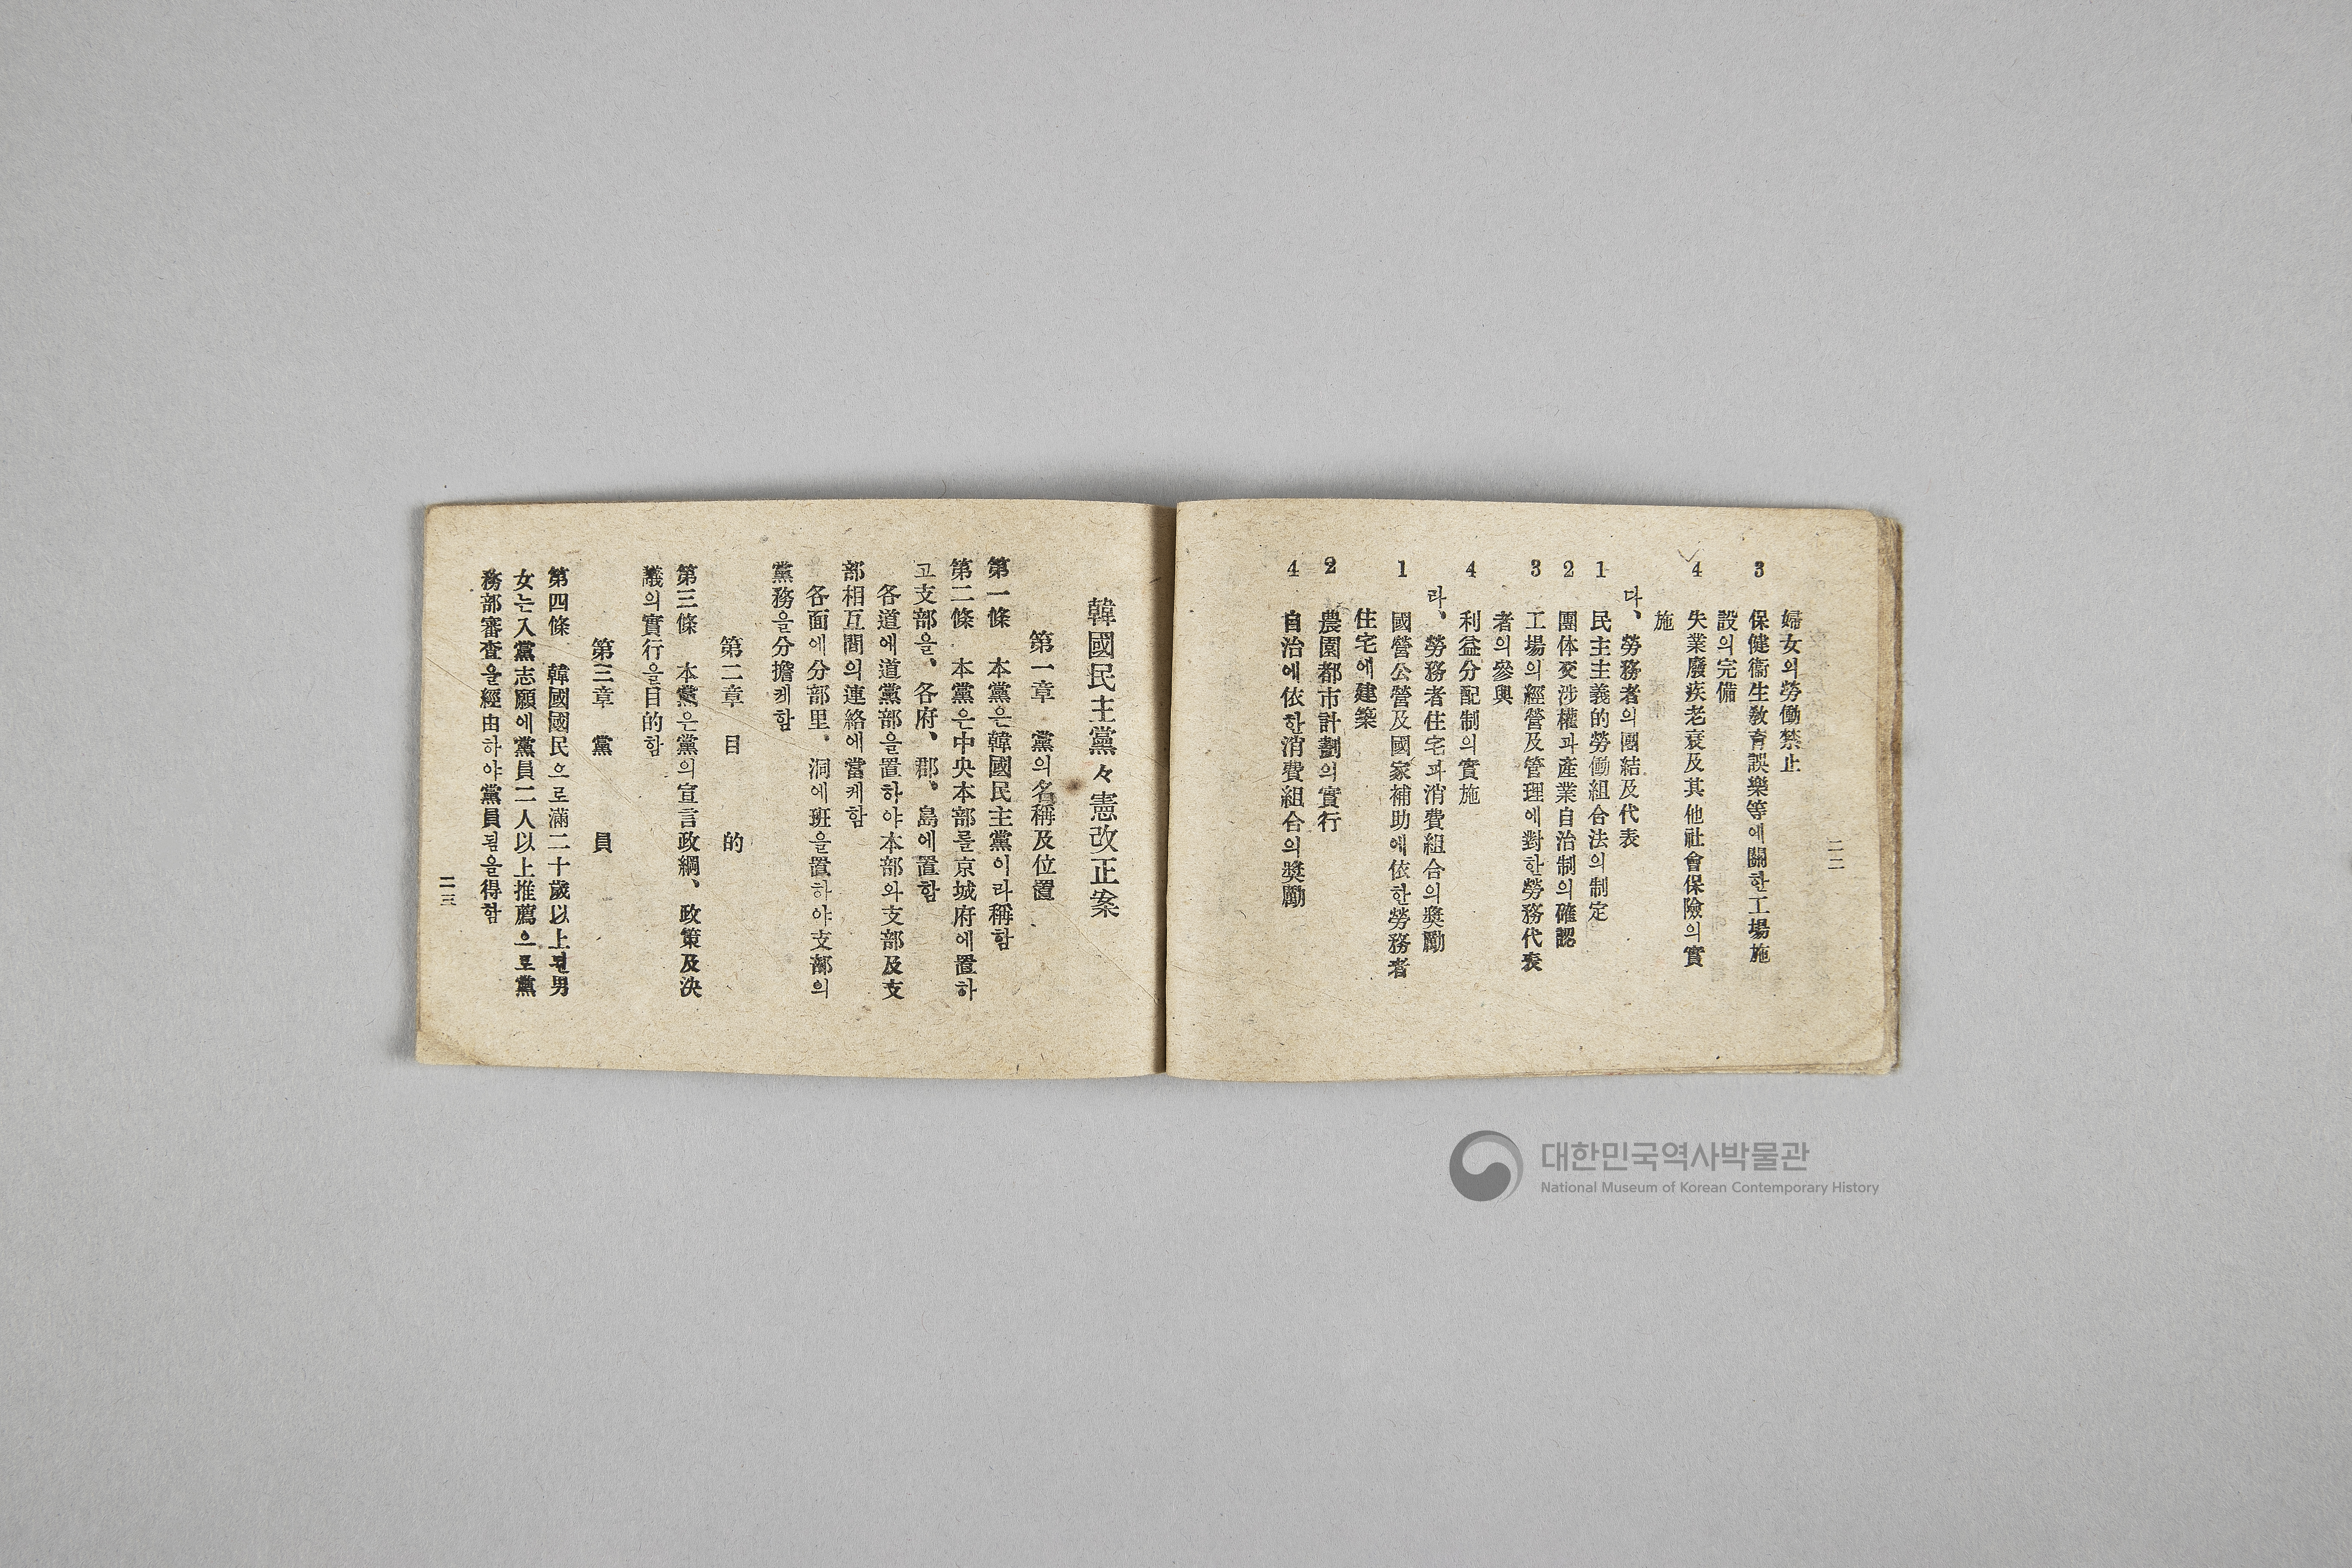 二二
婦女의勞働禁止
3 保健衞生敎育誤樂等에關한工場施
設의完備
4 失業廢疾老衰及其他社會保險의實
施
다、勞務者의團結及代表
1 民主主義的勞働組合法의制定
2 團体交涉權과產業自治制의確認
3 工場의經營及管理에對한勞務代表
者의參與
4 利益分配制의實施
라、勞務者住宅과消費組合의奬勵
1 國營公營及國家補助에依한勞務者
住宅에建築
2 農園都市計劃의實行
4 自治에依한消費組合의奬勵
韓國民主黨々憲改正案
第一章 黨의名稱及位置
第一條 本黨은韓國民主黨이라稱함
第二條 本黨은中央本部를京城府에置하
고支部을、各府、郡、島에置함
各道에道黨部을置하야本部와支部及支
部相互間의連絡에當케함
各面에分部里、洞에班을置하야支部의
黨務을分擔케함
第二章 目的
第三條 本黨은黨의宣言政綱、政策及決
議의實行을目的함
第三章 黨員
第四條 韓國國民으로滿二十歲以上된男
女는入黨志願에黨員二人以上推薦으로黨
務部審査을經由하야黨員됨을得함
二三
대한민국역사박물관
National Museum of Korean Contemporary History